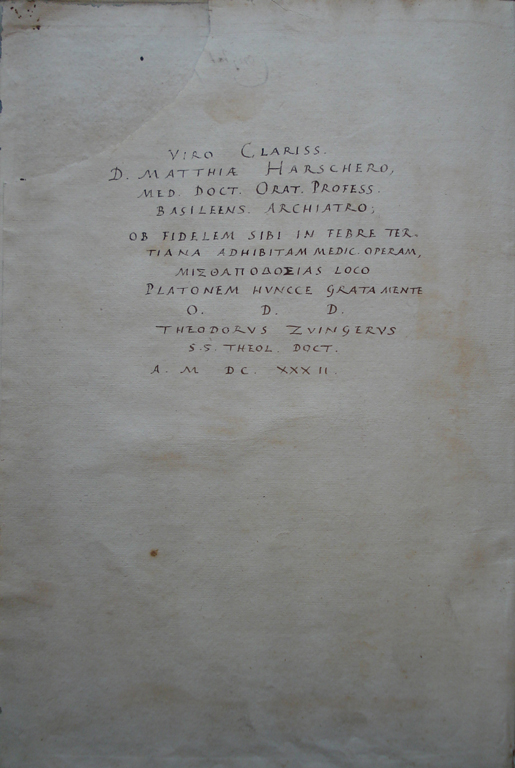 VIRO CLARISS.
D. MATTHIÆ HARSCHERO,
MED. DOCT. ORAT. PROFESS.
BASILEENS. ARCHIATRO;
OB FIDELEM SIBI IN FEBRE TER-
TIANA ADHIBITAM MEDIC. OPERAM,
ΜΙΣΘΑΠΟΔΟΣΙΑΣ LOCO
PLATONEM HVNCCE GRATA MENTE
O. D. D.
THEODORVS ZVINGERVS
S.S. THEOL. DOCT.
A. M DC. XXXII.